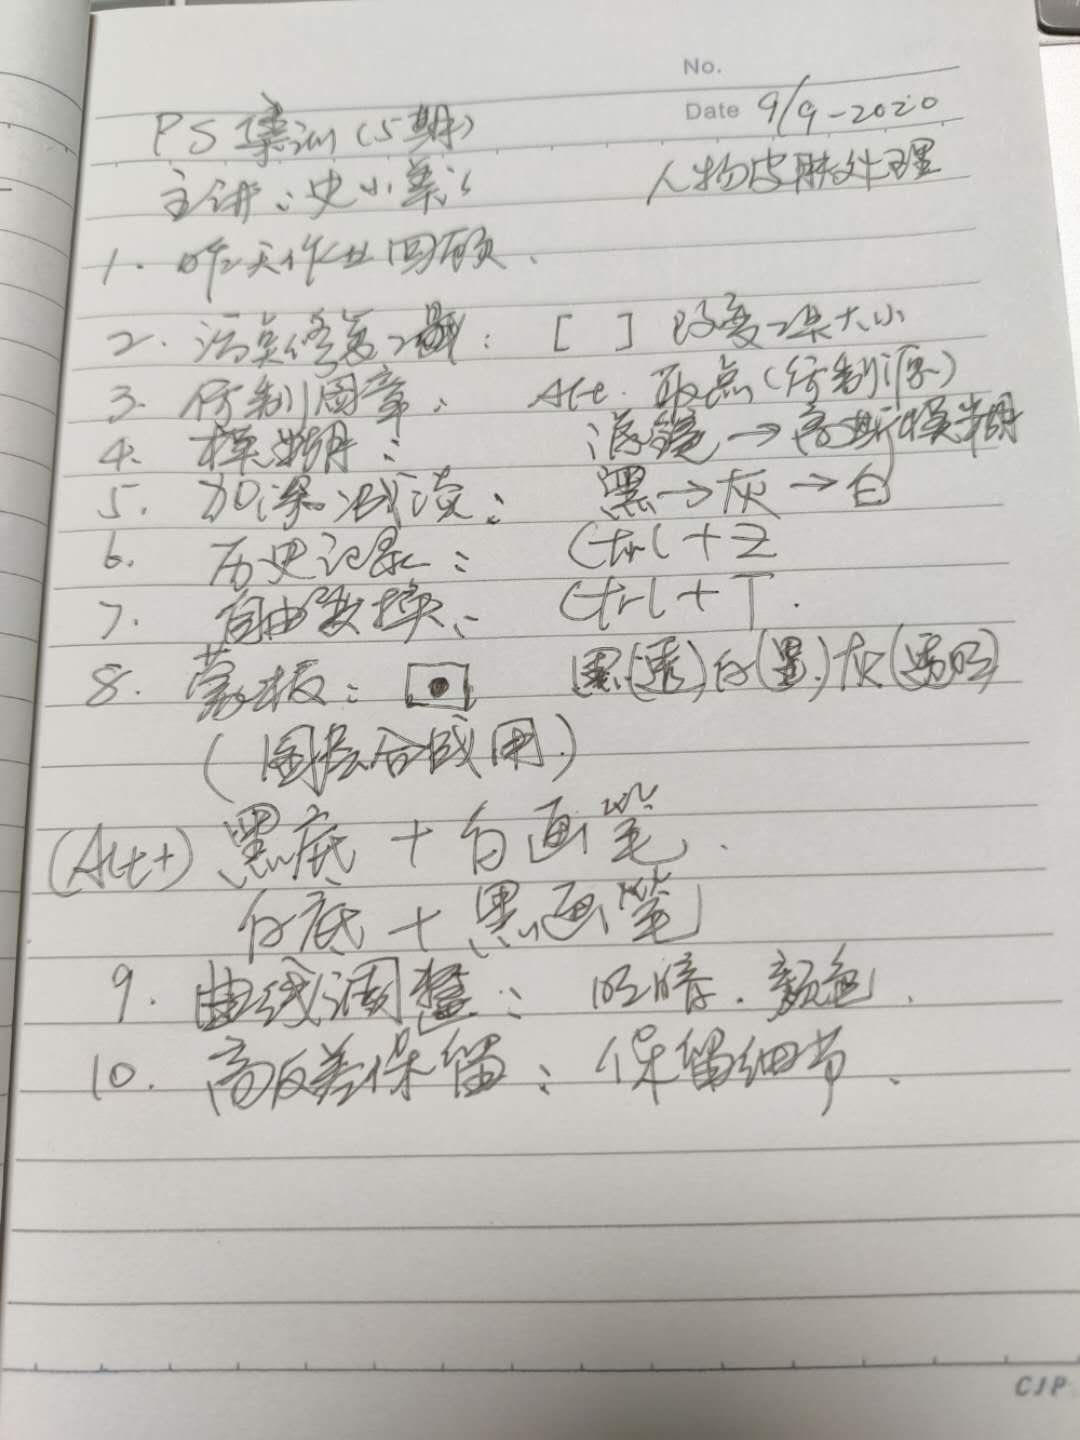 No.
Date 9/9-2020
PS集训(5期)
主讲:史小美 人物皮肤处理
1. 昨天作业回顾.
2. 污点修复工具: [ ] 改变工具大小
3. 仿制图章: Alt. 取点(仿制源)
4. 模糊: 滤镜→高斯模糊
5. 加深减淡: 黑→灰→白
6. 历史记录: Ctrl+Z
7. 自由变换: Ctrl+T.
8. 蒙板: 黑(透)白(显)灰(透明)
(图层合成用.)
(Alt+) 黑底+白画笔.
白底+黑画笔
9. 曲线调整: 明暗.颜色.
10. 高反差保留: 保留细节.
CJP